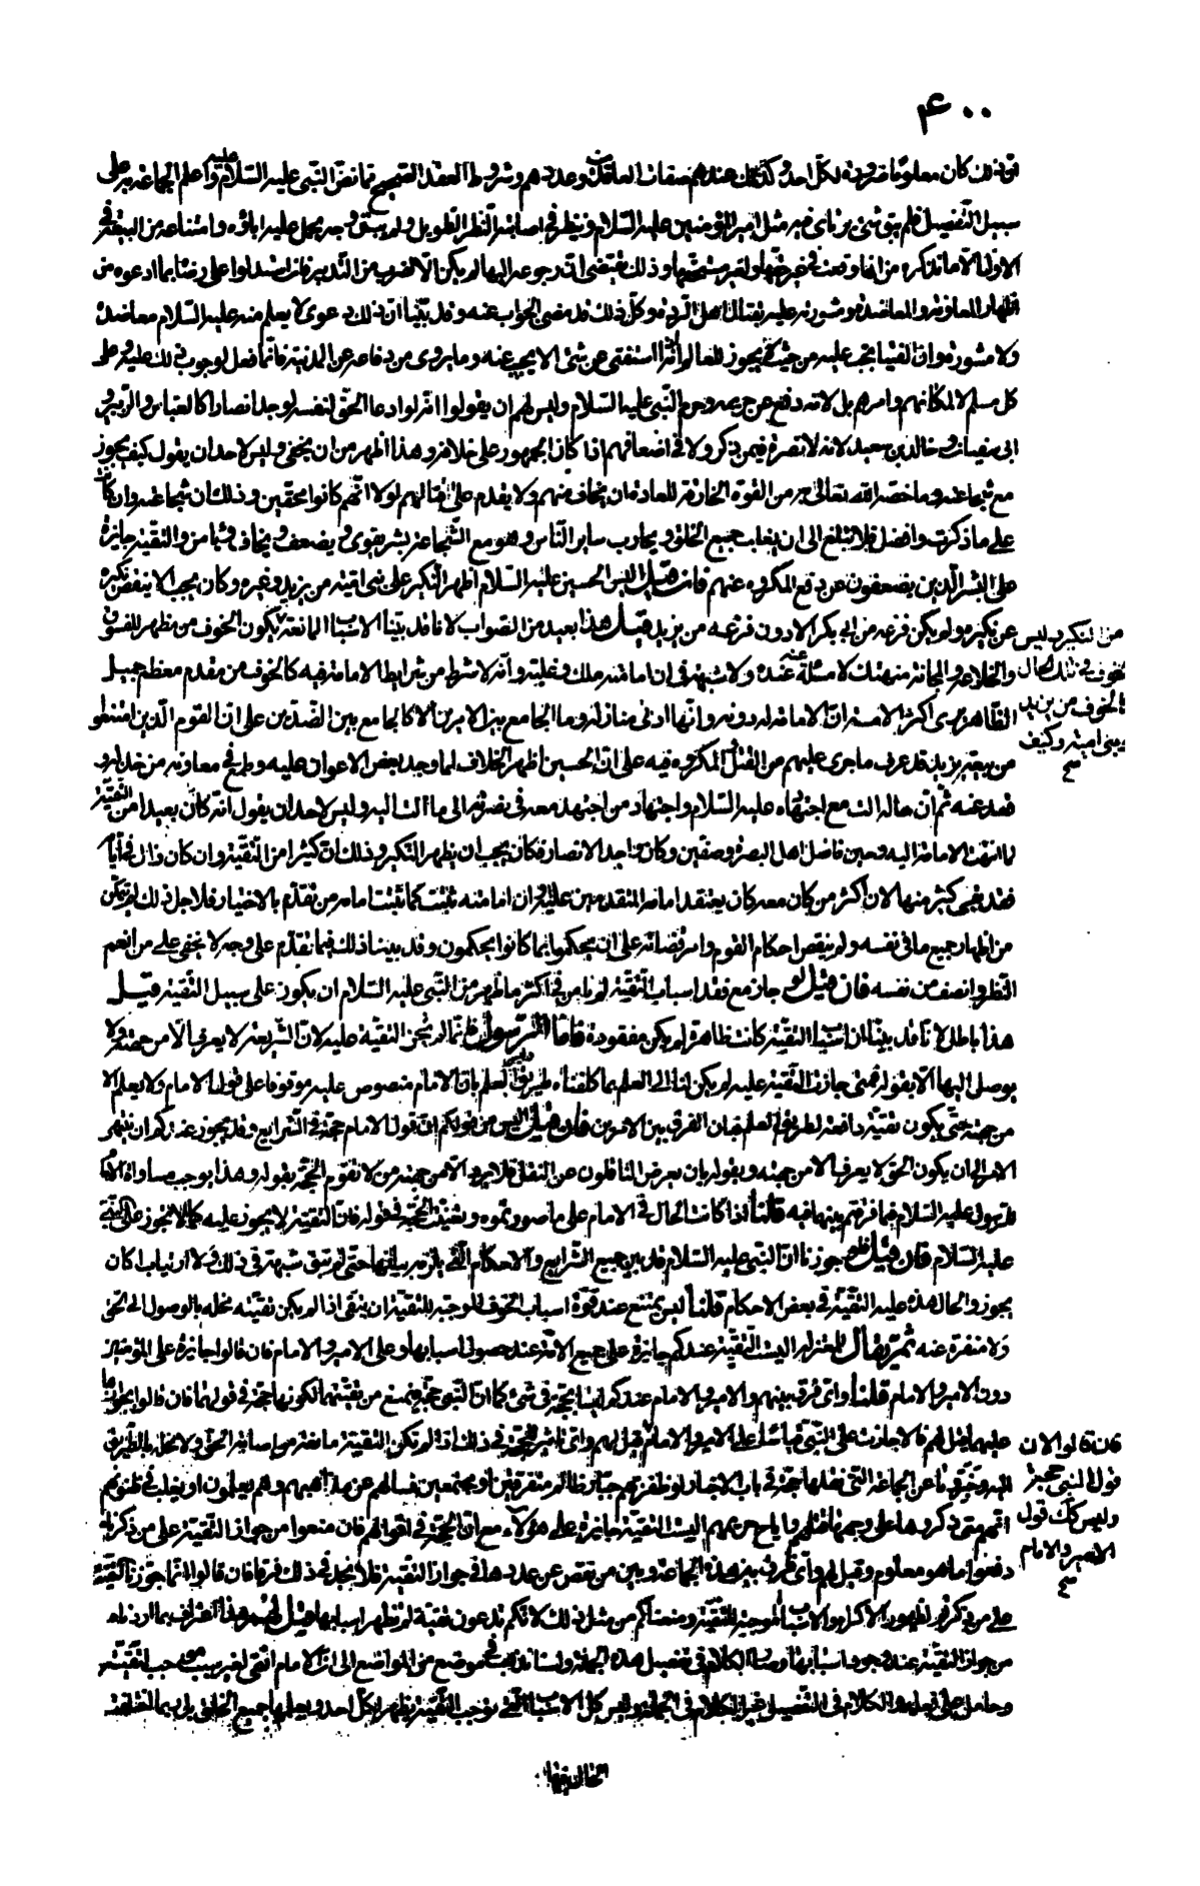 ۴۰۰
ذلك كان معلوما لكل احد وكذلك عندهم صفات العاقدين وعددهم وشروط العقد الصحيح مما نص النبي عليه السلام عليه واعلم الجماعة به على
سبيل التفصيل فلم يبق شيء يرتأى فيه مثل امير المؤمنين عليه السلام وينظر في اصابته النظر الطويل ولم يبق وجه يحمل عليه اباؤه وامتناعه من البيعة في
الاول الا ما نذكره من انها وقعت في غير حقها ولغير مستحقها وذلك يقتضي ان رجوعه اليها لم يكن الا لضرب من التدبير فان استدلوا على رضائه بما ادعوه من
اظهار المعاونة والمعاضدة ومشورته عليه بقتال اهل الردة وكل ذلك قد مضى الجواب عنه وقد بينا ان ذلك دعوى لا يعلم منه عليه السلام معاضدة
ولا مشورة وان الفتيا يجب عليه من حيث لا يجوز للعالم اذا استفتى عن شيء الا يجيب عنه وما يروى من دفاعه عن المدينة فانما فعل لوجوب ذلك عليه وعلى
كل مسلم لا لمكانهم وامرهم بل لانه دفع عن حريمه وحرم النبي عليه السلام وليس لهم ان يقولوا انه لو ادعا الحق لنفسه لوجد انصارا كالعباس والزبير و
ابي سفيان وخالد بن سعيد لانه لا نصرة فيمن ذكر ولا في اضعافهم اذا كان الجمهور على خلافه وهذا اظهر من ان يخفى وليس لاحد ان يقول كيف يجوز
مع شجاعته وما خصه الله تعالى به من القوة الخارقة للعادة ان يخاف منهم ولا يقدم على قتالهم لولا انهم كانوا محقين وذلك ان شجاعته وان كانت
على ما ذكرت وافضل فلا تبلغ الى ان يغلب جميع الخلق ويحارب ساير الناس وهو مع الشجاعة بشر يقوى ويضعف ويخاف ويامن والتقية جايزة
على البشر الذين يضعفون عن دفع المكروه عنهم فان قيل اليس الحسين عليه السلام اظهر النكير على بني امية من يزيد وغيره وكان يجب الا ينقص نكيره
عن نكيره ولم يكن فزعه من ابي بكر الا دون فزعه من يزيد قيل هذا بعيد من الصواب لانا قد بينا الاسباب المانعة من النكير وليس
الخوف في تلك الحال كالخوف من يزيد
وبني امية وكيف
يكون الخوف من مظهر للفسوق
والخلاعة والمجانة متهتك لا مسكة عنده ولا شبهة في ان امامته ملك وغلبة وانه لا شرط من شرايط الامامة فيه كالخوف من مقدم معظم جميل
الظاهر يرى اكثر الامة ان الامامة له دونه وانها ادنى منازله وما الجامع بين الامرين الا كالجامع بين الضدين على ان القوم الذين امتنعوا
من بيعة يزيد قد عرف ما جرى عليهم من القتل والمكروه فيه على ان الحسين اظهر الخلاف لما وجد بعض الاعوان عليه وطمع في معاونة من خذله و
قعد عنه ثم ان حاله الت مع اجتهاده عليه السلام واجتهاد من اجتهد معه في نصرته الى ما الت اليه وليس لاحد ان يقول انه كان بعيدا من التقية
لما انتهت الامامة اليه وحين فاضل اهل البصرة وصفين وكان واجد الانصار فكان يجب ان يظهر النكير وذلك ان كثيرا من التقية وان كان زال في ايامه
فقد بقي كثير منها لان اكثر من كان معه كان يعتقد امامة المتقدمين عليه وان امامته ثبتت كما ثبتت امامة من تقدم بالاختيار فلاجل ذلك لم يتمكن
من اظهار جميع ما في نفسه ولم ينقض احكام القوم وامر قضاته على ان يحكموا بما كانوا يحكمون وقد بينا ذلك فيما تقدم على وجه لا يخفى على من انعم
النظر وانصف من نفسه فان قيل لو جاز مع فقد اسباب التقية لم نامن في اكثر ما ظهر من النبي عليه السلام ان يكون على سبيل التقية قيل
هذا باطل لانا قد بينا ان اسباب التقية كانت ظاهرة لم يكن مفقودة فاما الرسول فانما لم تجز التقية عليه لان الشريعة لا يعرف الا من جهته ولا
يوصل اليها الا بقوله فمتى جازت التقية عليه لم يكن لنا الى العلم بما كلفناه طريق وليس العلم بان الامام منصوص عليه موقوفا على قول الامام ولا يعلم الا
من جهته حتى يكون تقيته دافعة لطريق العلم فبان الفرق بين الامرين فان قيل اليس من قولكم ان قول الامام حجة في الشرايع وقد يجوز عندكم ان ينتهي
الامر الى ان يكون الحق لا يعرف الا من جهته وبقوله بان يعرض الناقلون عن النقل فلا يرد الا من جهة من لا تقوم الحجة بقوله وهذا يوجب مساواة الامام
للرسول عليه السلام فيما فرقتم بينهما فيه قلنا اذا كانت الحال في الامام على ما صورتموه وتعينت الحجة في قوله فان التقية لا يجوز عليه كما لا تجوز على النبي
عليه السلام فان قيل فلو جوزنا ان النبي عليه السلام قد بين جميع الشرايع والاحكام التي يلزمه بيانها حتى لم تبق شبهة في ذلك ولا ارتياب اكان
يجوز والحال هذه عليه التقية في بعض الاحكام قلنا ليس يمتنع عند قوة اسباب الخوف الموجبة للتقية ان يتقى اذا لم يكن تقيته مخلة بالوصول الى الحق
ولا منفرة عنه ثم يقال للمعتزلة اليست التقية عندكم جايزة على جميع الامة عند حصول اسبابها وعلى الامير والامام فان قالوا جايزة على المؤمنين
دون الامير والامام قلنا واي فرق بينهم والامير والامام عندكم ليسا بحجة في شيء كما ان النبي حجة فيمنع من تقيتهما لكونهما حجة في قولهما فان قالوا بجوازها
عليهما قيل لهم فالا جازت على النبي قياسا على الامير والامام فان قالوا لان
قول النبي حجة
وليس كك قول
الامير والامام
قيل لهم واي تاثير للحجة في ذلك اذا لم تكن التقية مانعة من اصابة الحق ولا مخلة بالطريق
اليه وخبرونا عن الجماعة التي نقلها حجة في باب الاخبار لو ظفر بهم جبار ظالم متفرقين او مجتمعين فسالهم عن مذاهبهم وهم يعلمون او يغلب في ظنونهم
انهم متى ذكروها على وجهها قتلهم واباح حريمهم اليست التقية جايزة على هؤلاء مع ان الحجة في اقوالهم فان منعوا من جواز التقية على من ذكرناه
دفعوا ما هو معلوم وقيل لهم واي فرق بين هذه الجماعة وبين من نقص عن عددها في جواز التقية فلا يجد في ذلك فرقا فان قالوا انما جوزنا التقية
على من ذكرتم لظهور الاكراه والاسباب الموجبة للتقية ومنعناكم من مثل ذلك لانكم تدعون تقية لم تظهر اسبابها قيل لهم هذا اعتراف بما اردناه
من جواز التقية عند وجود اسبابها وصار الكلام في تفصيل هذه الجملة ولسنا نذهب في موضع من المواضع الى ان الامام اتقى لغير سبب موجب لتقيته
وحامل على فعله والكلام في التفصيل غير الكلام في الجملة وليس كل الاسباب التي توجب التقية تظهر لكل احد ويعلمها جميع الخلق بل ربما اختلفت
الحال فيها